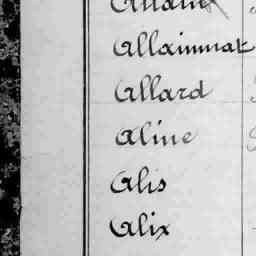 Allainmat
Allard
Aline
Alis
Alix